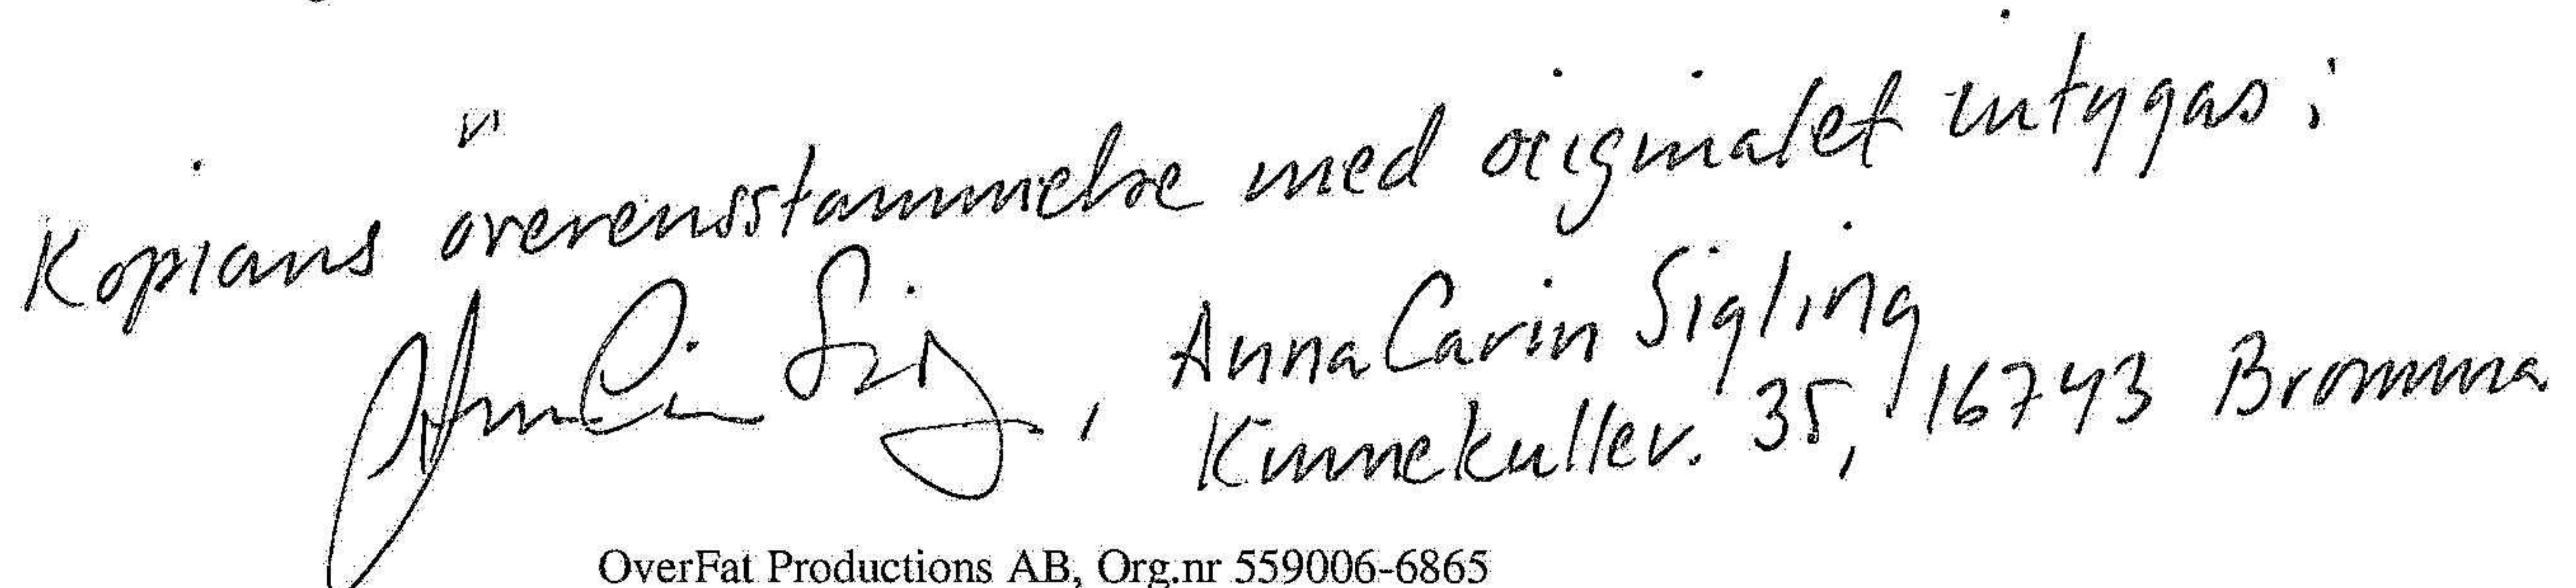 Kopians överensstammelse med originalet intygas:
AnnaCarin Sigling
Kinnekullev. 35, 16743 Bromma
OverFat Productions AB, Org.nr 559006-6865